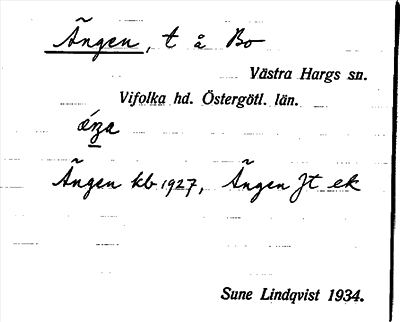 Ängen, t å Bo
Västra Hargs sn.
Vifolka hd. Östergötl. län.
Ängen kb 1927, Ängen Jt ek
Sune Lindqvist 1934.